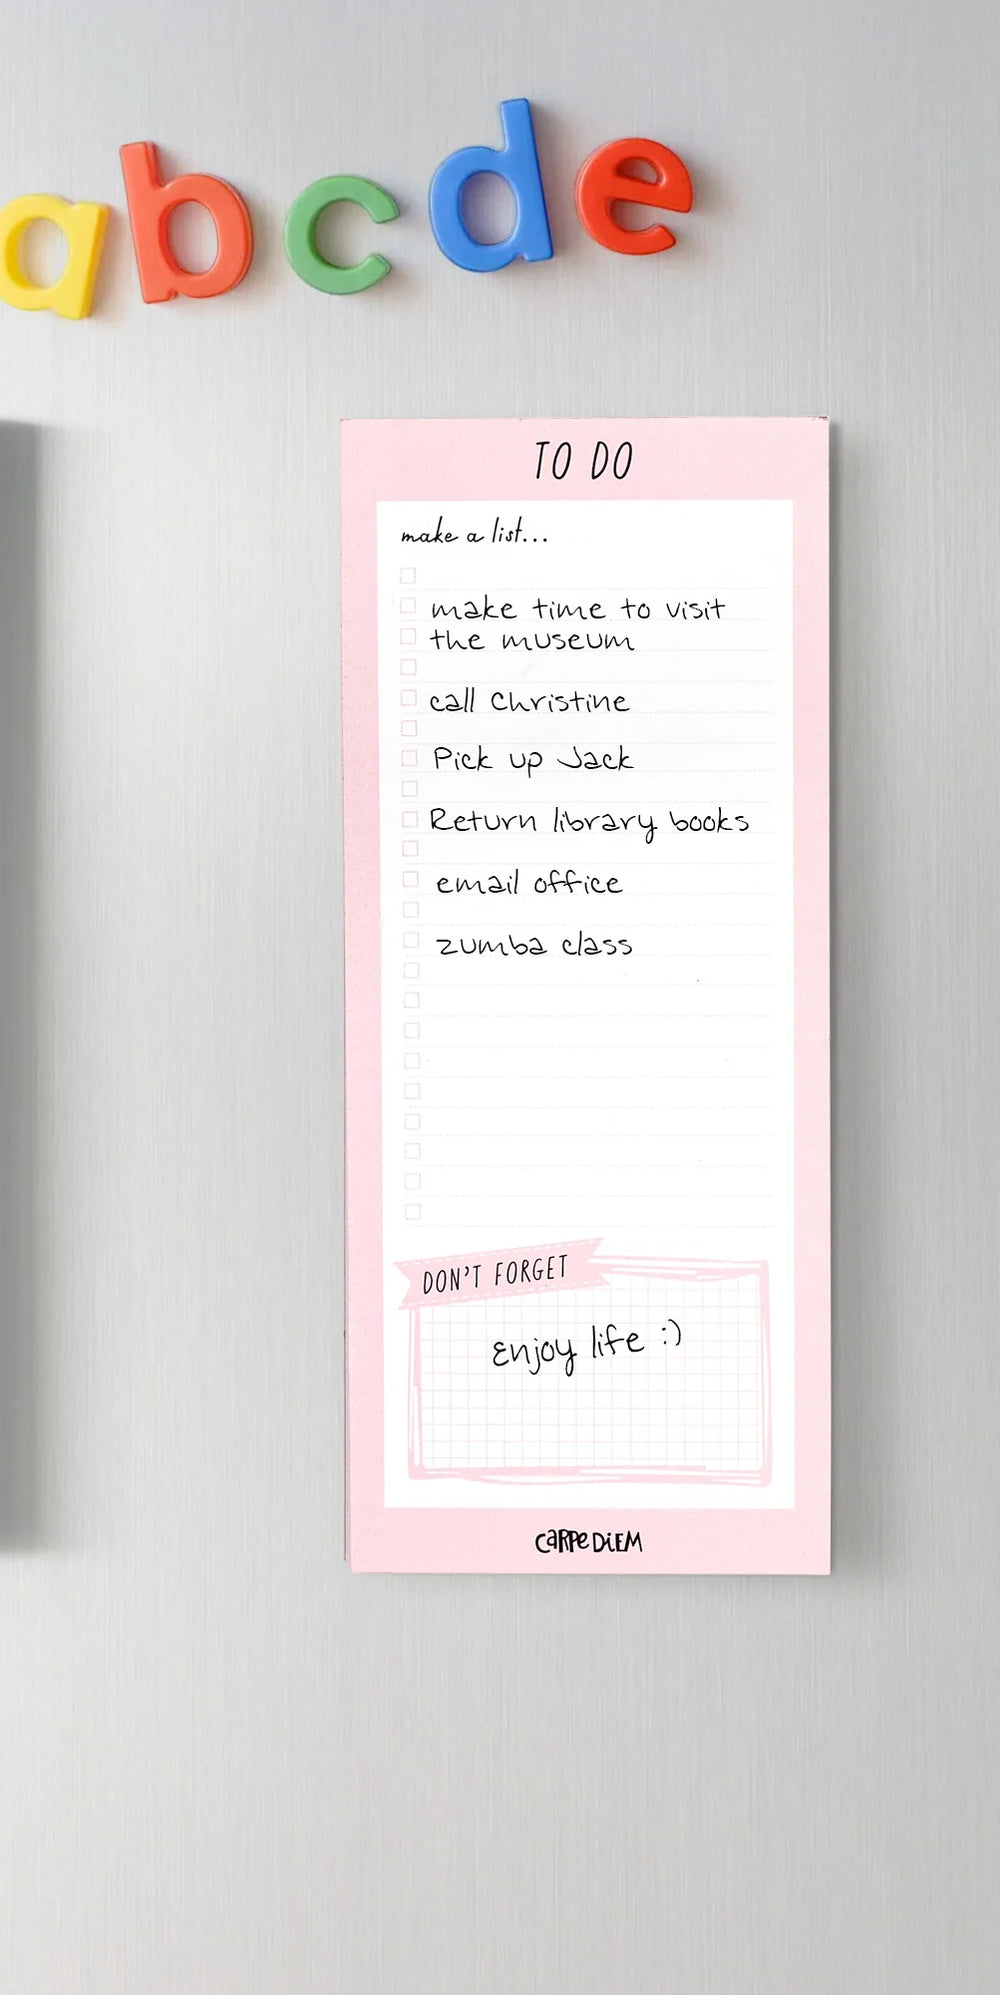 abcde
TO DO
make a list...
make time to visit
the museum
call Christine
Pick up Jack
Return library books
email office
zumba class
DON'T FORGET
Enjoy life :)
CARPE DIEM